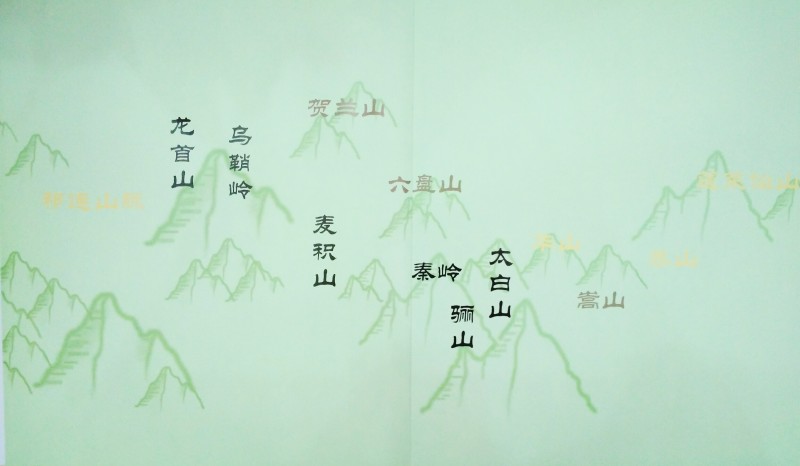 龙首山
乌鞘岭
贺兰山
六盘山
祁连山脉
麦积山
秦岭
骊山
太白山
华山
嵩山